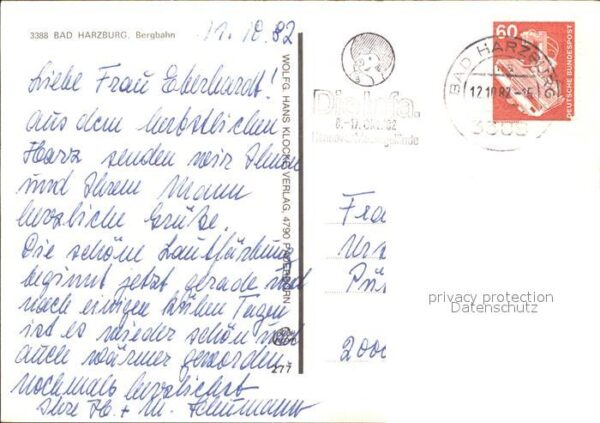 3388 BAD HARZBURG. Bergbahn
11.10.82
Liebe Frau Eberhardt!
aus dem herbstlichen
Harz senden wir Ihnen
und Ihrem Mann
herzliche Grüße.
Die schöne Laubfärbung
beginnt jetzt gerade und
nach einigen kühlen Tagen
ist es wieder schön und
auch wärmer geworden.
nochmals herzlichst
Ihre H. + M. Schumann
WOLFG. HANS KLOCKE VERLAG. 4790 PADERBORN
277
8.-17. Okt. 82
60
DEUTSCHE BUNDESPOST
BAD HARZBURG
12.10.82-15
3388
Fra
Pür
2000
privacy protection
Datenschutz